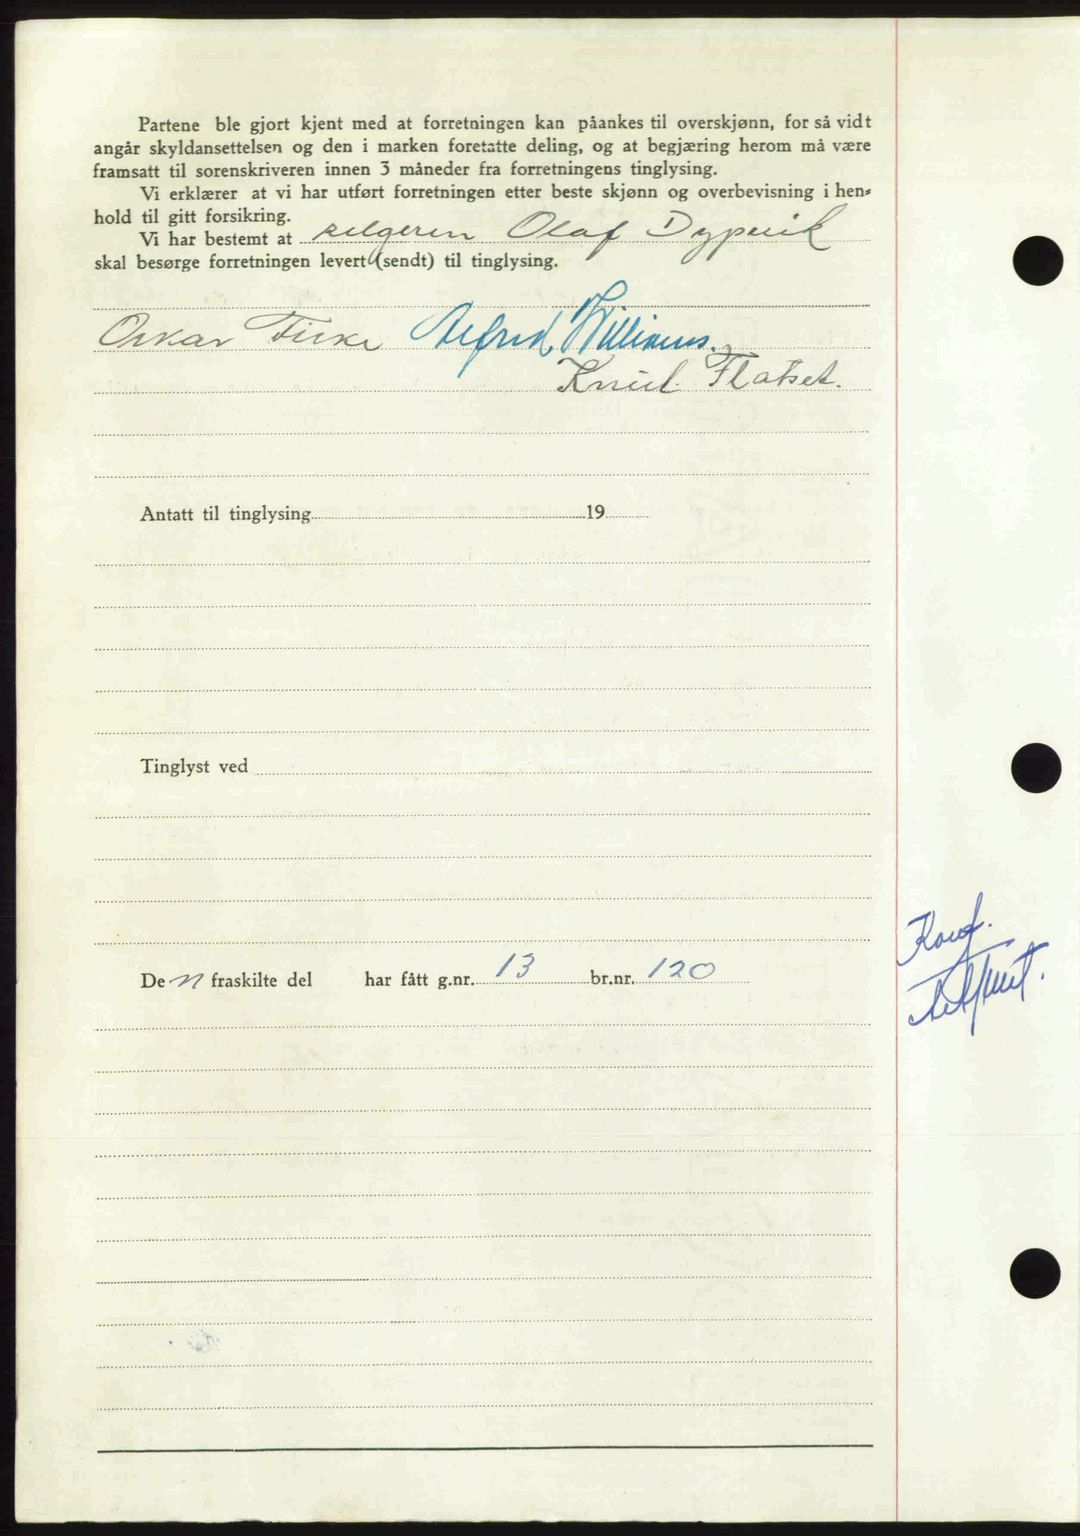 Partene ble gjort kjent med at forretningen kan påankes til overskjønn, for så vidt
angår skyldansettelsen og den i marken foretatte deling, og at begjæring herom må være
framsatt til sorenskriveren innen 3 måneder fra forretningens tinglysing.
Vi erklærer at vi har utført forretningen etter beste skjønn og overbevisning i hen-
hold til gitt forsikring.
Vi har bestemt at selgeren Olaf Dypvik
skal besørge forretningen levert (sendt) til tinglysing.
Oskar Alfred Williams.
Knut Flatset.
Antatt til tinglysing 19
Tinglyst ved
De n fraskilte del har fått g.nr. 13 br.nr. 120
Konf.